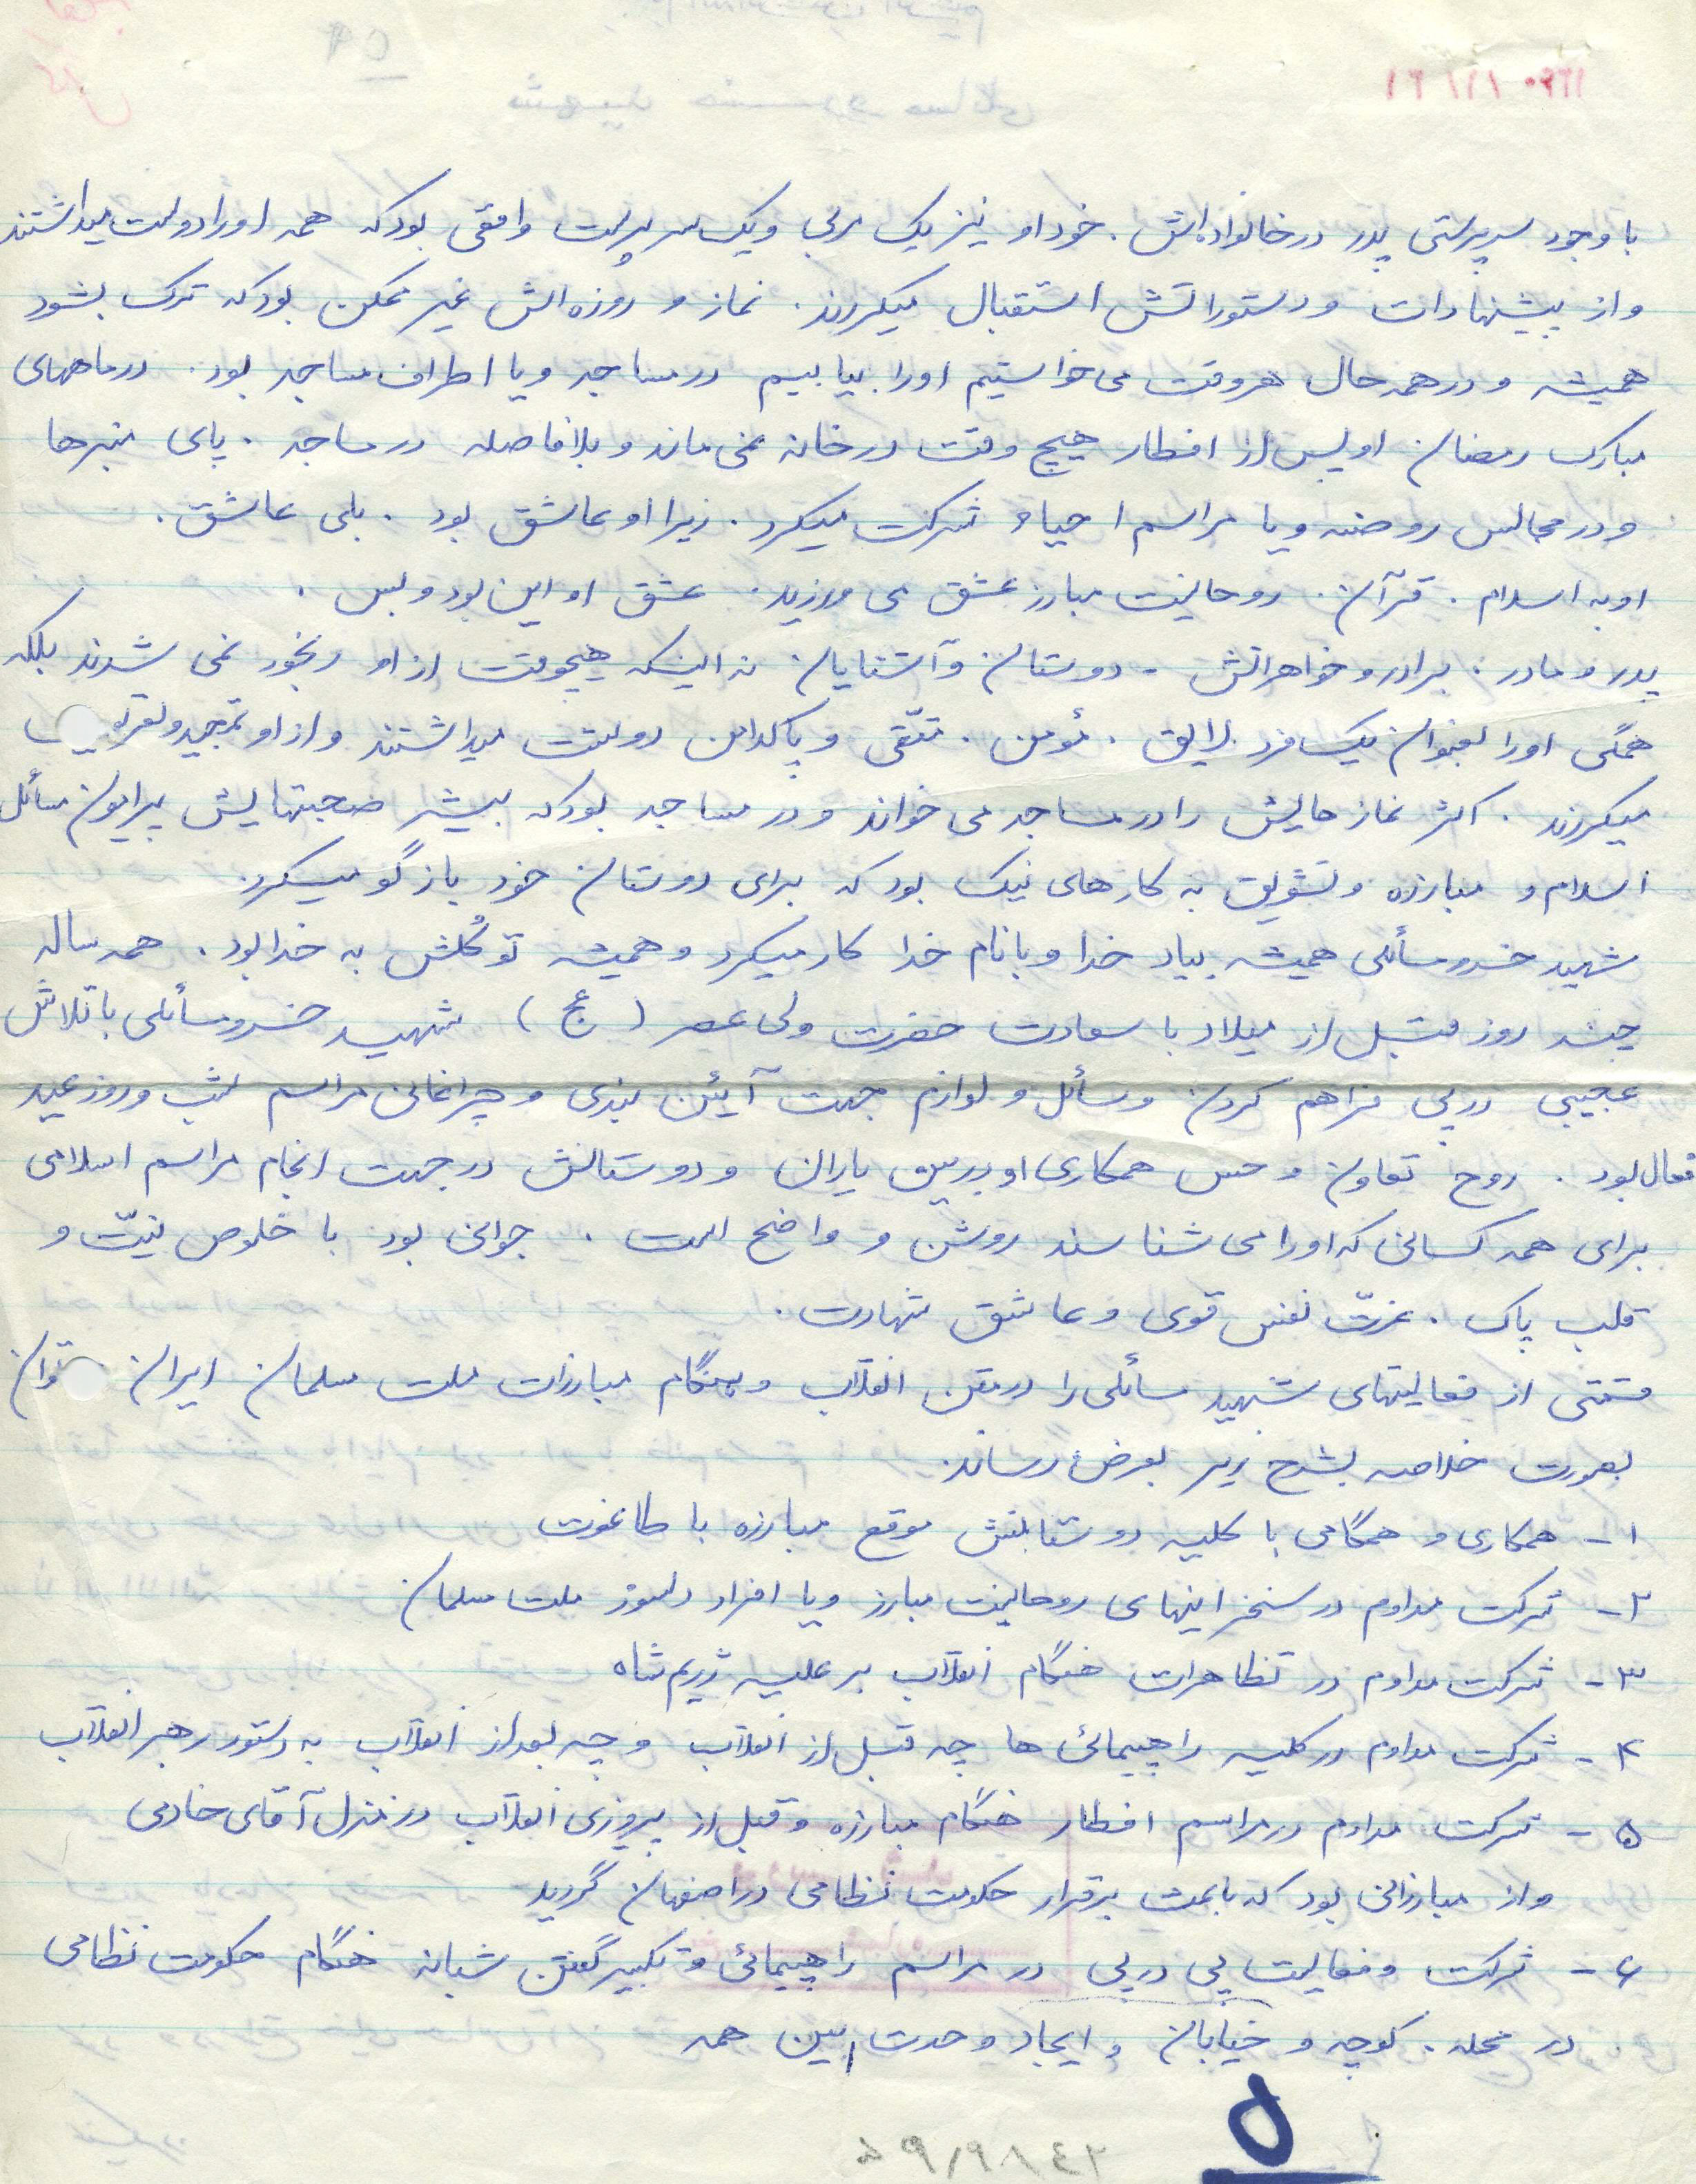 با وجود سرپرستی پدر در خانواده‌اش. خود او نیز یک مربی و یک سرپرست واقعی بود که همه او را دوست میداشتند
و از پیشنهادات و دستوراتش استقبال میکردند. نماز و روزه‌اش غیر ممکن بود که ترک بشود
همیشه و در همه حال هر وقت می خواستیم او را بیابیم در مساجد و یا اطراف مساجد بود. در ماههای
مبارک رمضان او پس از افطار هیچ وقت در خانه نمی ماند و بلافاصله در مساجد. پای منبرها
و در مجالس روضه و یا مراسم احیاء شرکت میکرد. زیرا او عاشق بود. بلی عاشق.
او به اسلام. قرآن. روحانیت مبارز عشق می ورزید. عشق او این بود و بس.
پدر و مادر. برادر و خواهرانش - دوستان و آشنایان نه اینکه هیچوقت از او رنجور نمی شدند بلکه
همگی او را بعنوان یک فرد لایق. مؤمن. متّقی و پاکدامن دوست میداشتند و از او تمجید و تعریف
میکردند. اکثر نمازهایش را در مساجد می خواند و در مساجد بود که بیشتر صحبتهایش پیرامون مسائل
اسلام و مبارزه و تشویق به کارهای نیک بود که برای دوستان خود بازگو میکرد.
شهید خسرو مسائلی همیشه بیاد خدا و با نام خدا کار میکرد و همیشه توکُلش به خدا بود. همه ساله
چند روز قبل از میلاد با سعادت حضرت ولی عصر (عج) شهید خسرو مسائلی با تلاش
عجیبی در پی فراهم کردن وسائل و لوازم جهت آیئن بندی و چراغانی مراسم شب و روز عید
فعال بود. روح تعاون و حس همکاری او در بین یاران و دوستانش در جهت انجام مراسم اسلامی
برای همه کسانی که او را می شناسند روشن و واضح است. جوانی بود با خلوص نیّت و
قلب پاک. عزّت نفس قوی و عاشق شهادت.
قسمتی از فعالیتهای شهید مسائلی را در متن انقلاب و هنگام مبارزات ملت مسلمان ایران
بصورت خلاصه بشرح زیر بعرض رساند.
۱- همکاری و همگامی با کلیه دوستانش موقع مبارزه با طاغوت
۲- شرکت مداوم در سخنرانیهای روحانیت مبارز و یا افراد دلسوز ملت مسلمان
۳- شرکت مداوم در تظاهرات هنگام انقلاب بر علیه رژیم شاه
۴- شرکت مداوم در کلیه راهپیمائی ها چه قبل از انقلاب و چه بعد از انقلاب به دستور رهبر انقلاب
۵- شرکت مداوم در مراسم افطار هنگام مبارزه و قبل از پیروزی انقلاب در منزل آقای خادمی
و از مبارزانی بود که باعث برقرار حکومت نظامی در اصفهان گردید
۶- شرکت و فعالیت پی در پی در مراسم راهپیمائی و تکبیر گفتن شبانه هنگام حکومت نظامی
در محله. کوچه و خیابان و ایجاد وحدت بین همه
۵